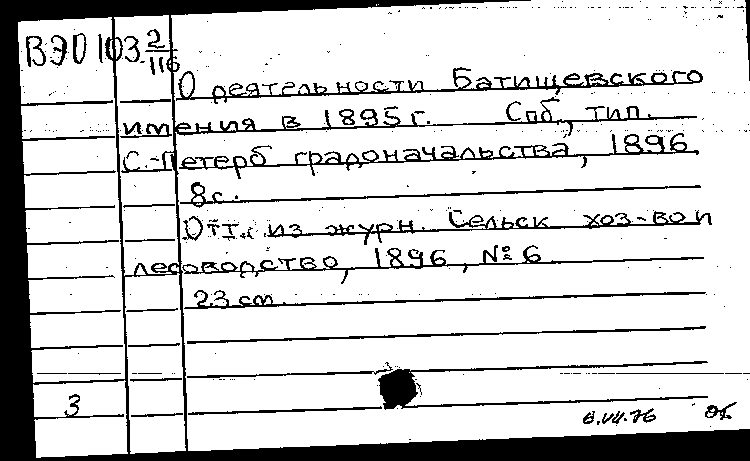 ВЭО 103 2/116
О деятельности Батищевского
имения в 1895 г. Спб., тип.
С.-Петерб градоначальства, 1896
8 с.
Отт. из журн. Сельск хоз-во и
лесоводство, 1896, № 6
23 см.
3
6.VII.76